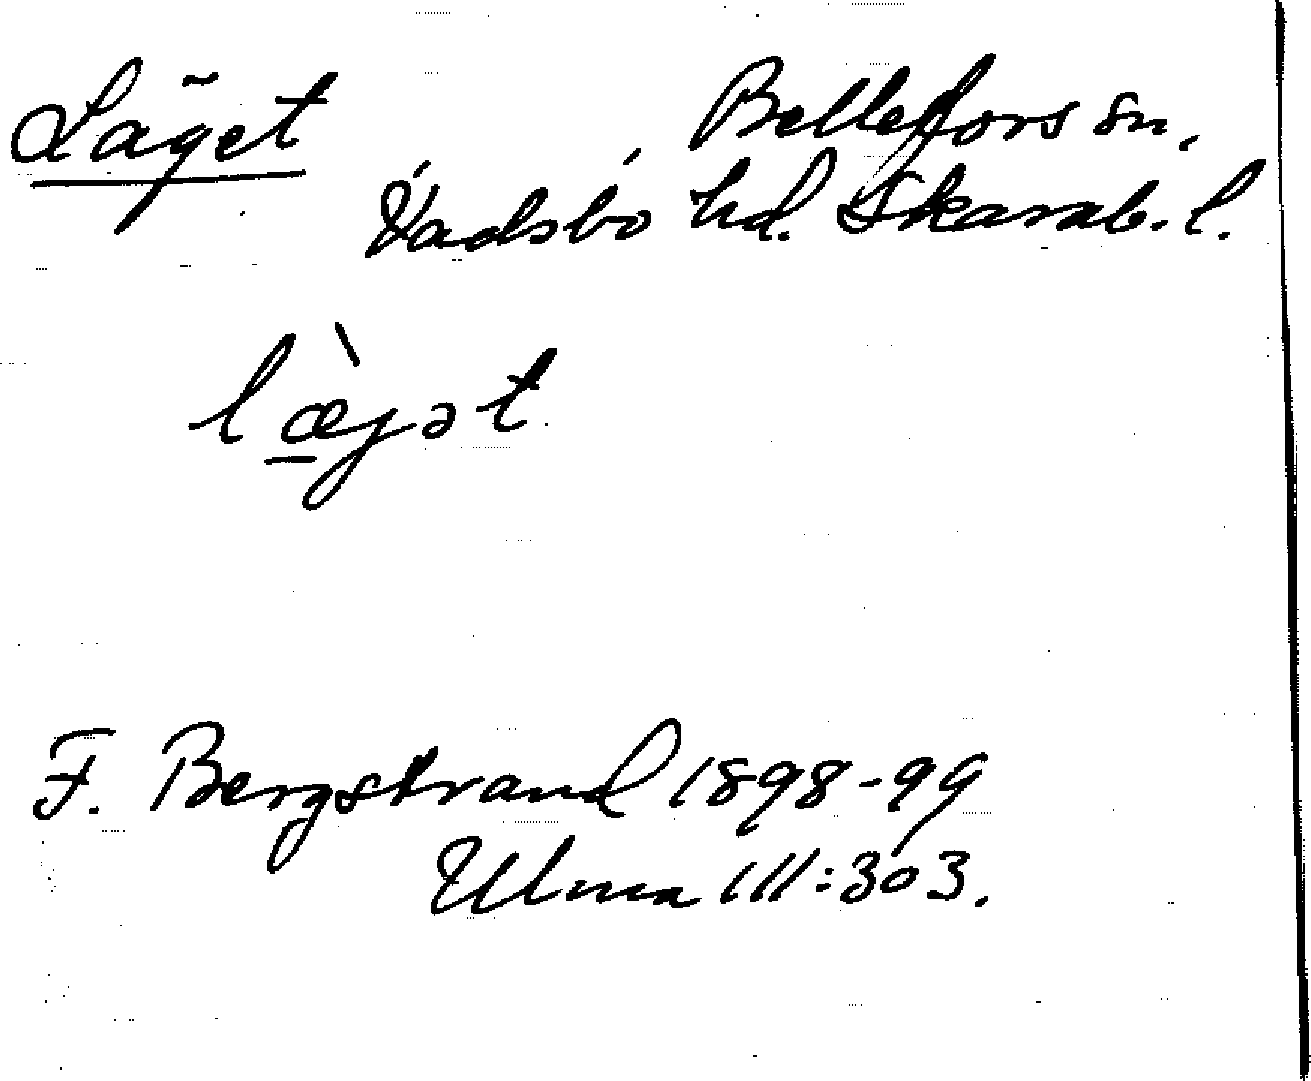 Läget Bellefors sn.
Vadsbo hd. Skarab. l.
læ̀gət
F. Bergstrand 1898-99
Ulma 111:303.